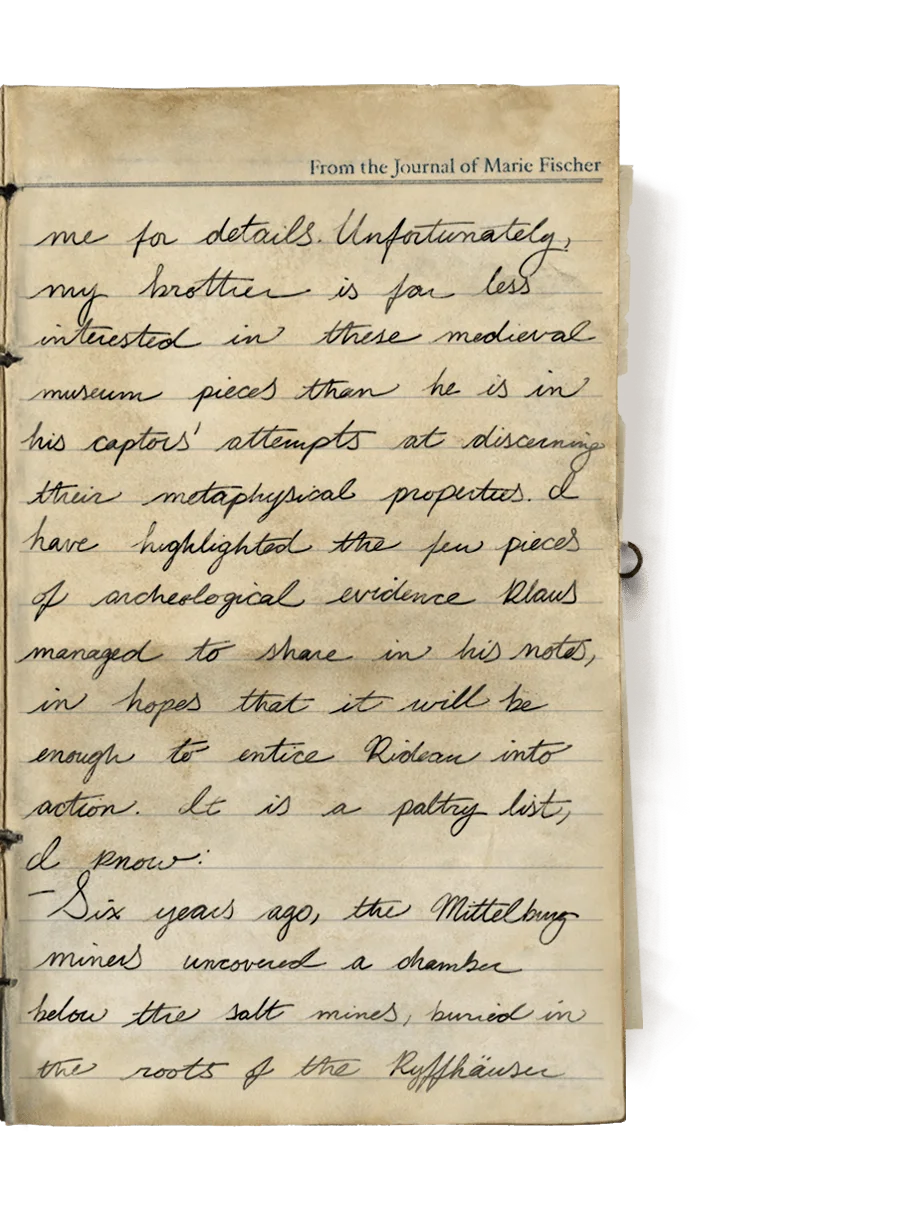 From the Journal of Marie Fischer
me for details. Unfortunately,
my brother is far less
interested in these medieval
museum pieces than he is in
his captors' attempts at discerning
their metaphysical properties. I
have highlighted the few pieces
of archeological evidence Klaus
managed to share in his notes,
in hopes that it will be
enough to entice Rideau into
action. It is a paltry list,
I know:
- Six years ago, the Mittelburg
miners uncovered a chamber
below the salt mines, buried in
the roots of the Kyffhäuser